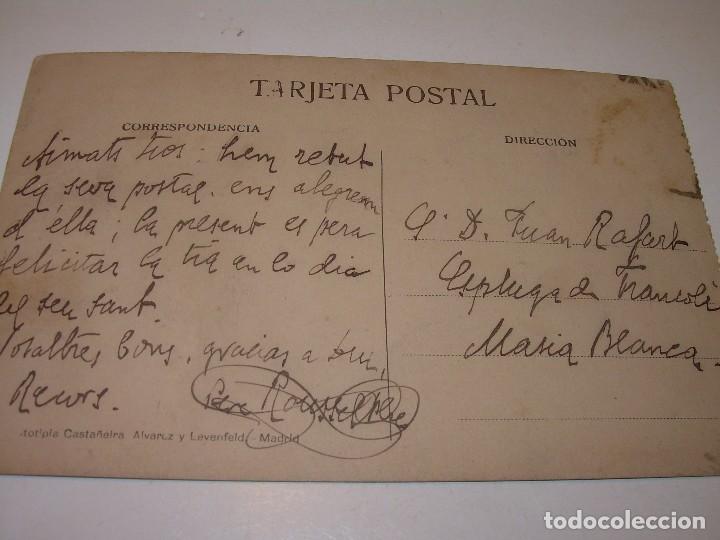 TARJETA POSTAL
CORRESPONDENCIA
DIRECCIÓN
Aimats tios: hem rebut
la seva postal. ens alegrem
d'élla; la present es pera
felicitar la tia en lo dia
del seu sant.
Nosaltres bons, gracias a Deu,
Records.
Pere Rousselle
S. D. Juan Rafart
Espluga de Francolí
Masia Blanca.
totipia Castañeira Alvarez y Levenfeld.- Madrid
todocoleccion.net